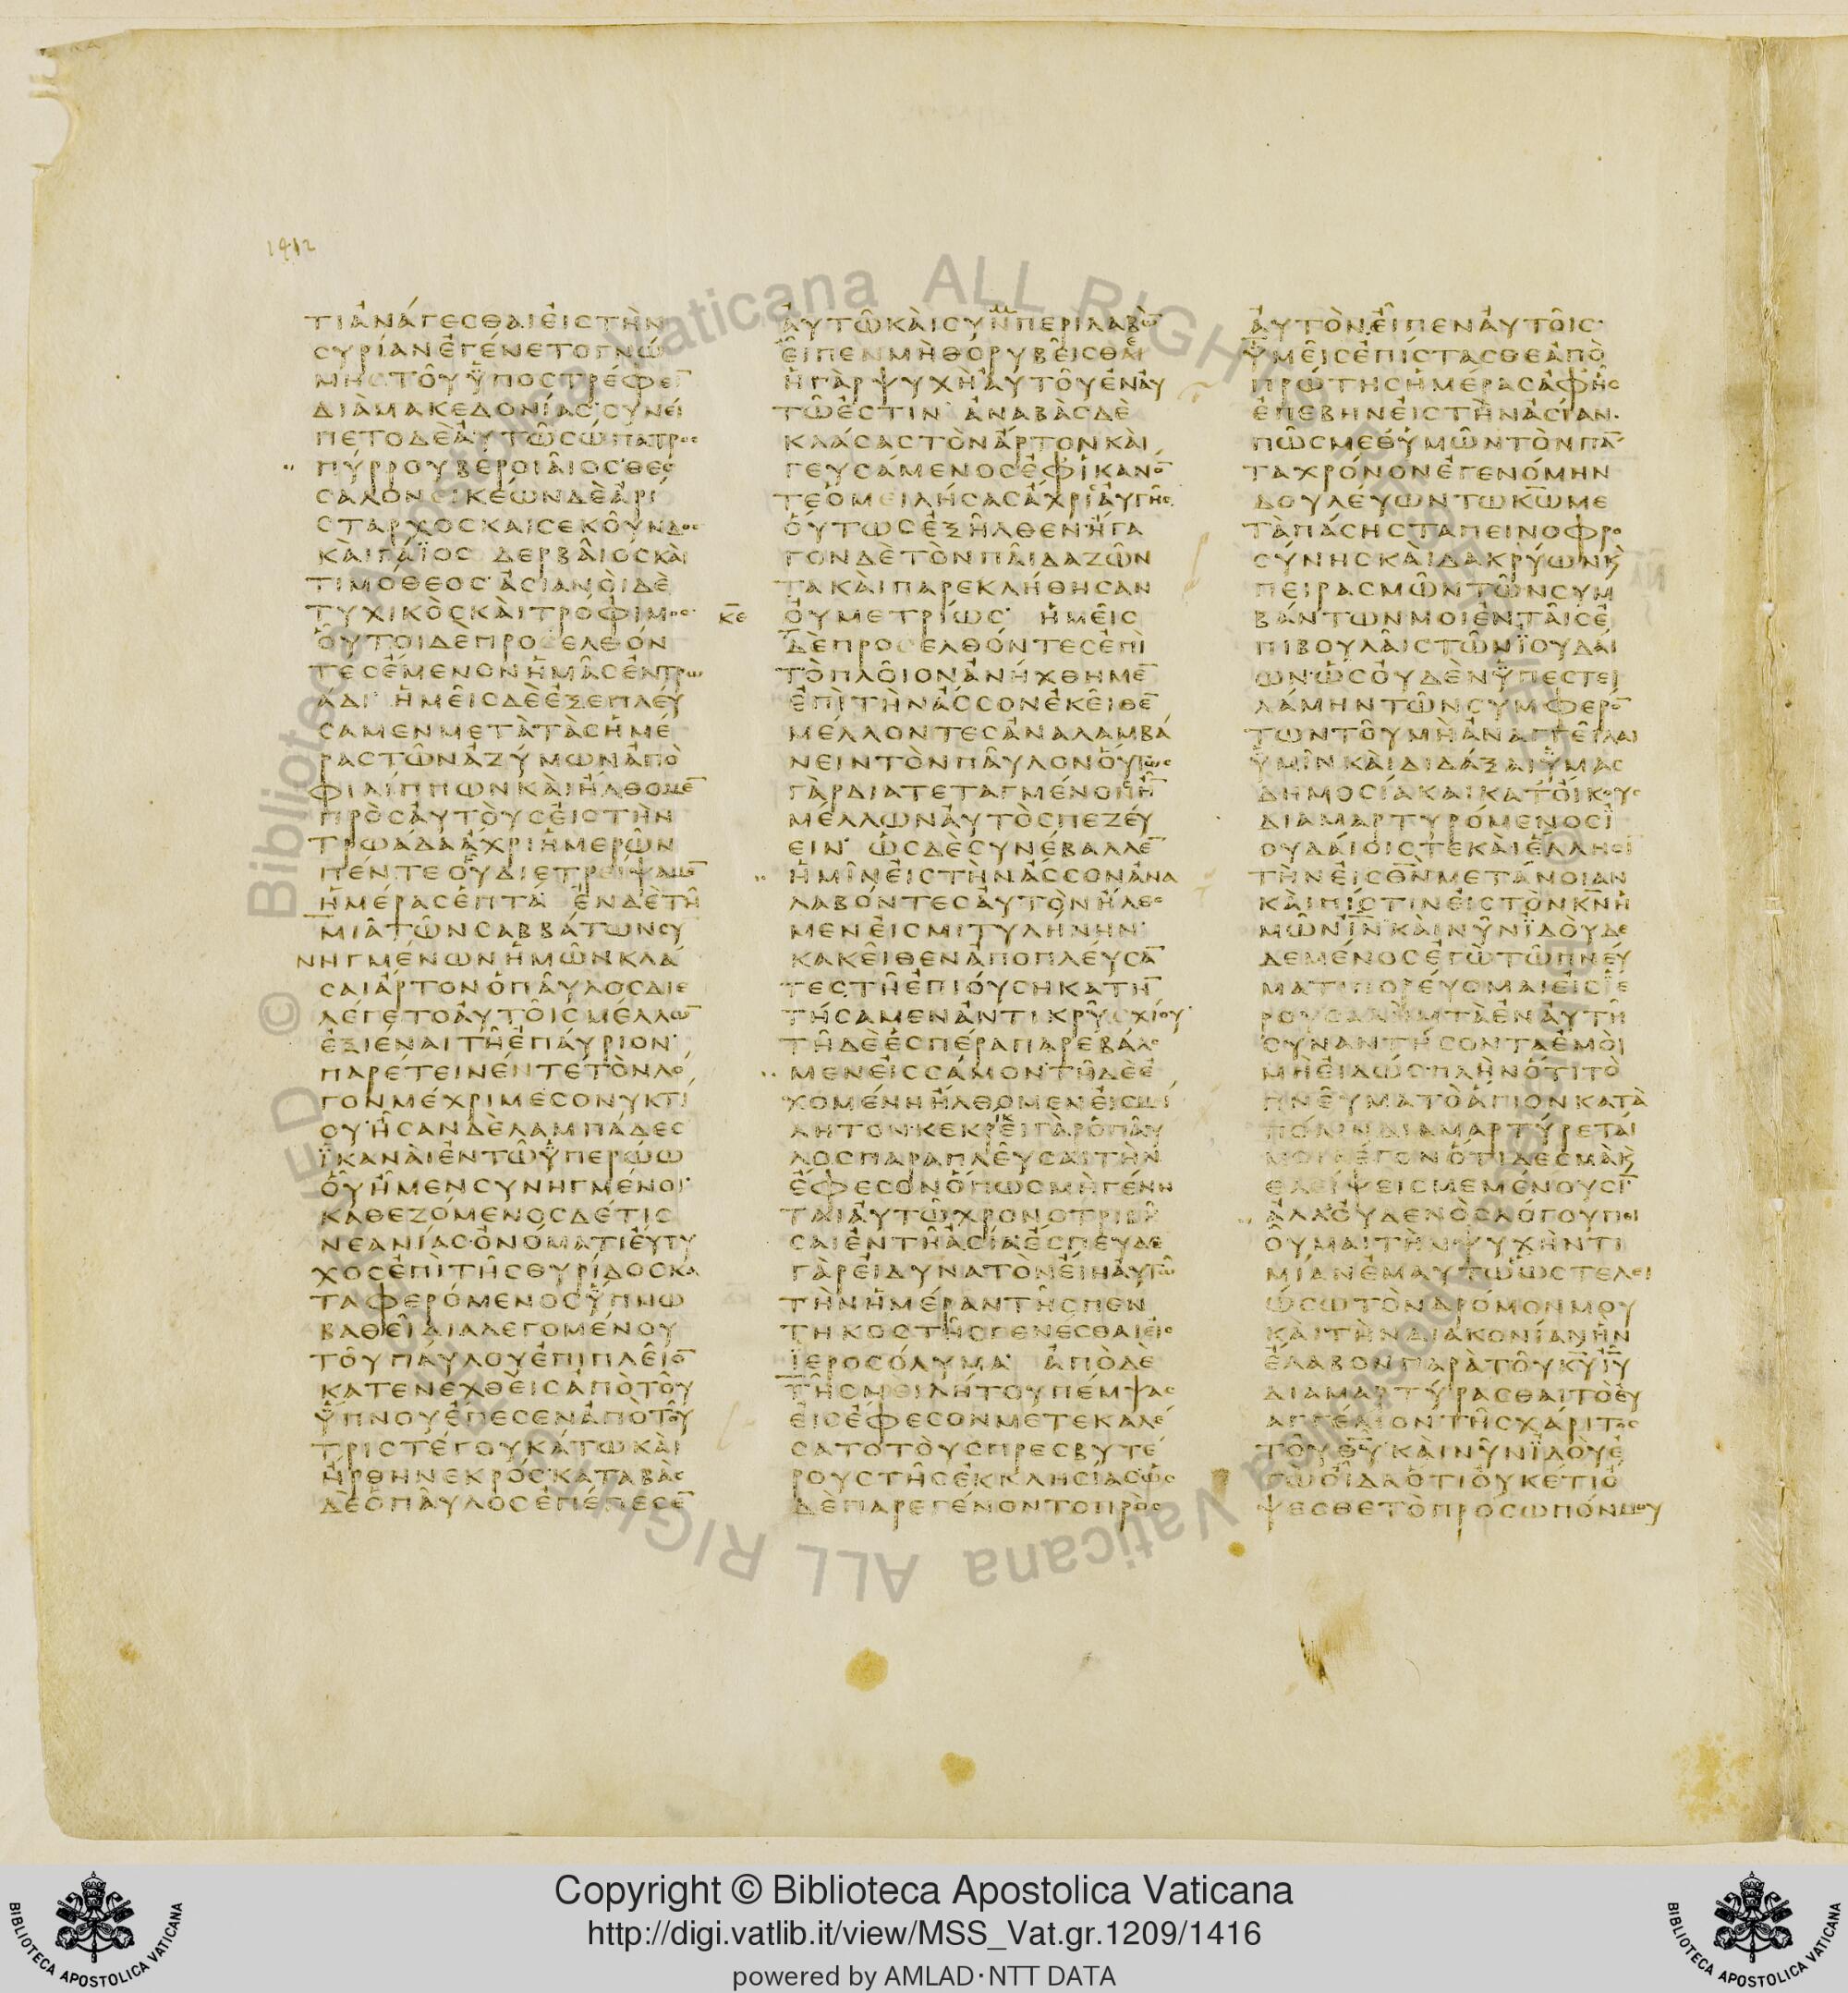 1412
ΤΙΑΝΑΓΕΣΘΑΙΕΙΣΤΗΝ
ΣΥΡΙΑΝΕΓΕΝΕΤΟΓΝΩ
ΜΗΣΤΟΥΫΠΟΣΤΡΕΦΕΙ̅
ΔΙΑΜΑΚΕΔΟΝΙΑΣ·ΣΥΝΕΙ
ΠΕΤΟΔΕΑΥΤΩΣΩΠΑΤΡΟΣ
ΠΥΡΡΟΥΒΕΡΟΙΑΙΟΣ·ΘΕΣ
ΣΑΛΟΝΕΙΚΕΩΝΔΕΑΡΙ
ΣΤΑΡΧΟΣΚΑΙΣΕΚΟΥΝΔΟΣ
ΚΑΙΓΑΪΟΣ ΔΕΡΒΑΙΟΣΚΑΙ
ΤΙΜΟΘΕΟΣ· ΑΣΙΑΝΟΙΔΕ
ΤΥΧΙΚΟΣΚΑΙΤΡΟΦΙΜΟΣ·
ΟΥΤΟΙΔΕΠΡΟΣΕΛΘΟΝ
ΤΕΣΕΜΕΝΟΝΗΜΑΣΕΝΤΡΩ
ΑΔΙ· ΗΜΕΙΣΔΕΕΞΕΠΛΕΥ
ΣΑΜΕΝΜΕΤΑΤΑΣΗΜΕ
ΡΑΣΤΩΝΑΖΥΜΩΝΑΠΟ
ΦΙΛΙΠΠΩΝΚΑΙΗΛΘΟΜΕ̅
ΠΡΟΣΑΥΤΟΥΣΕΙΣΤΗΝ
ΤΡΩΑΔΑΑΧΡΙΗΜΕΡΩΝ
ΠΕΝΤΕΟΥΔΙΕΤΡΕΙΨΑΜΕ̅
ΗΜΕΡΑΣΕΠΤΑ· ΕΝΔΕΤΗ
ΜΙΑΤΩΝΣΑΒΒΑΤΩΝΣΥ
ΝΗΓΜΕΝΩΝΗΜΩΝΚΛΑ
ΣΑΙΑΡΤΟΝΟΠΑΥΛΟΣΔΙΕ
ΛΕΓΕΤΟΑΥΤΟΙΣΜΕΛΛΩ̅
ΕΞΙΕΝΑΙΤΗΕΠΑΥΡΙΟΝ·
ΠΑΡΕΤΕΙΝΕΝΤΕΤΟΝΛΟ
ΓΟΝΜΕΧΡΙΜΕΣΟΝΥΚΤΙ
ΟΥ·ΗΣΑΝΔΕΛΑΜΠΑΔΕΣ
ΪΚΑΝΑΙΕΝΤΩΫΠΕΡΩΩ
ΟΥΗΜΕΝΣΥΝΗΓΜΕΝΟΙ·
ΚΑΘΕΖΟΜΕΝΟΣΔΕΤΙΣ
ΝΕΑΝΙΑΣ·ΟΝΟΜΑΤΙΕΥΤΥ
ΧΟΣΕΠΙΤΗΣΘΥΡΙΔΟΣΚΑ
ΤΑΦΕΡΟΜΕΝΟΣΫΠΝΩ
ΒΑΘΕΙΔΙΑΛΕΓΟΜΕΝΟΥ
ΤΟΥΠΑΥΛΟΥΕΠΙΠΛΕΙΟ̅
ΚΑΤΕΝΕΧΘΕΙΣΑΠΟΤΟΥ
ΫΠΝΟΥΕΠΕΣΕΝΑΠΟΤΟΥ
ΤΡΙΣΤΕΓΟΥΚΑΤΩΚΑΙ
ΗΡΘΗΝΕΚΡΟΣ·ΚΑΤΑΒΑΣ
ΔΕΟΠΑΥΛΟΣΕΠΕΠΕΣΕ̅
ΑΥΤΩΚΑΙΣΥΝΠΕΡΙΛΑΒΩ̅
ΕΙΠΕΝΜΗΘΟΡΥΒΕΙΣΘΑΙ
ΗΓΑΡΨΥΧΗΑΥΤΟΥΕΝΑΥ
ΤΩΕΣΤΙΝ· ΑΝΑΒΑΣΔΕ
ΚΛΑΣΑΣΤΟΝΑΡΤΟΝΚΑΙ
ΓΕΥΣΑΜΕΝΟΣΕΦΙΚΑΝΟ̅
ΤΕΟΜΕΙΛΗΣΑΣΑΧΡΙΑΥΓΗΣ
ΟΥΤΩΣΕΞΗΛΘΕΝ·ΗΓΑ
ΓΟΝΔΕΤΟΝΠΑΙΔΑΖΩΝ
ΤΑΚΑΙΠΑΡΕΚΛΗΘΗΣΑΝ
ΚΕ ΟΥΜΕΤΡΙΩΣ· ΗΜΕΙΣ
ΔΕΠΡΟΣΕΛΘΟΝΤΕΣΕΠΙ
ΤΟΠΛΟΙΟΝΑΝΗΧΘΗΜΕ̅
ΕΠΙΤΗΝΑΣΣΟΝΕΚΕΙΘΕ̅
ΜΕΛΛΟΝΤΕΣΑΝΑΛΑΜΒΑ
ΝΕΙΝΤΟΝΠΑΥΛΟΝΟΥΤΩΣ
ΓΑΡΔΙΑΤΕΤΑΓΜΕΝΟΣΗ̅
ΜΕΛΛΩΝΑΥΤΟΣΠΕΖΕΥ
ΕΙΝ· ΩΣΔΕΣΥΝΕΒΑΛΛΕ̅
ΗΜΙΝΕΙΣΤΗΝΑΣΣΟΝΑΝΑ
ΛΑΒΟΝΤΕΣΑΥΤΟΝΗΛΘΟ
ΜΕΝΕΙΣΜΙΤΥΛΗΝΗΝ·
ΚΑΚΕΙΘΕΝΑΠΟΠΛΕΥΣΑ̅
ΤΕΣΤΗΕΠΙΟΥΣΗΚΑΤΗ̅
ΤΗΣΑΜΕΝΑΝΤΙΚΡΥΣΧΙΟΥ
ΤΗΔΕΕΣΠΕΡΑΠΑΡΕΒΑΛΟ
ΜΕΝΕΙΣΣΑΜΟΝ·ΤΗΔΕΕ
ΧΟΜΕΝΗΗΛΘΟΜΕΝΕΙΣΜΙ
ΛΗΤΟΝ·ΚΕΚΡΙΚΕΙΓΑΡΟΠΑΥ
ΛΟΣΠΑΡΑΠΛΕΥΣΑΙΤΗΝ
ΕΦΕΣΟΝΟΠΩΣΜΗΓΕΝΗ
ΤΑΙΑΥΤΩΧΡΟΝΟΤΡΙΒΗ
ΣΑΙΕΝΤΗΑΣΙΑΕΣΠΕΥΔΕ
ΓΑΡΕΙΔΥΝΑΤΟΝΕΙΗΑΥΤΩ
ΤΗΝΗΜΕΡΑΝΤΗΣΠΕΝ
ΤΗΚΟΣΤΗΣΓΕΝΕΣΘΑΙΕΙΣ
ΪΕΡΟΣΟΛΥΜΑ· ΑΠΟΔΕ
ΤΗΣΜΕΙΛΗΤΟΥΠΕΜΨΑΣ
ΕΙΣΕΦΕΣΟΝΜΕΤΕΚΑΛΕ
ΣΑΤΟΤΟΥΣΠΡΕΣΒΥΤΕ
ΡΟΥΣΤΗΣΕΚΚΛΗΣΙΑΣ·ΩΣ
ΔΕΠΑΡΕΓΕΝΟΝΤΟΠΡΟΣ
ΑΥΤΟΝ·ΕΙΠΕΝΑΥΤΟΙΣ·
ΫΜΕΙΣΕΠΙΣΤΑΣΘΕΑΠΟ
ΠΡΩΤΗΣΗΜΕΡΑΣΑΦΗΣ
ΕΠΕΒΗΝΕΙΣΤΗΝΑΣΙΑΝ·
ΠΩΣΜΕΘΥΜΩΝΤΟΝΠΑ̅
ΤΑΧΡΟΝΟΝΕΓΕΝΟΜΗΝ
ΔΟΥΛΕΥΩΝΤΩΚ̅Ω̅ΜΕ
ΤΑΠΑΣΗΣΤΑΠΕΙΝΟΦΡΟ
ΣΥΝΗΣΚΑΙΔΑΚΡΥΩΝΚ
ΠΕΙΡΑΣΜΩΝΤΩΝΣΥΜ
ΒΑΝΤΩΝΜΟΙΕΝΤΑΙΣΕ
ΠΙΒΟΥΛΑΙΣΤΩΝΪΟΥΔΑΙ
ΩΝ·ΩΣΟΥΔΕΝΫΠΕΣΤΕΙ
ΛΑΜΗΝΤΩΝΣΥΜΦΕΡΟ̅
ΤΩΝΤΟΥΜΗΑΝΑΓΓΕΙΛΑΙ
ΫΜΙΝΚΑΙΔΙΔΑΞΑΙΫΜΑΣ
ΔΗΜΟΣΙΑΚΑΙΚΑΤΟΙΚΟΥΣ
ΔΙΑΜΑΡΤΥΡΟΜΕΝΟΣΙ
ΟΥΔΑΙΟΙΣΤΕΚΑΙΕΛΛΗΣΙ
ΤΗΝΕΙΣΘ̅Ν̅ΜΕΤΑΝΟΙΑΝ
ΚΑΙΠΙΣΤΙΝΕΙΣΤΟΝΚ̅Ν̅Η
ΜΩΝΙ̅Ν̅·ΚΑΙΝΥΝΪΔΟΥΔΕ
ΔΕΜΕΝΟΣΕΓΩΤΩΠΝΕΥ
ΜΑΤΙΠΟΡΕΥΟΜΑΙΕΙΣΙΕ
ΡΟΥΣΑΛΗΜΤΑΕΝΑΥΤΗ
ΣΥΝΑΝΤΗΣΟΝΤΑΕΜΟΙ
ΜΗΕΙΔΩΣ·ΠΛΗΝΟΤΙΤΟ
ΠΝΕΥΜΑΤΟΑΓΙΟΝΚΑΤΑ
ΠΟΛΙΝΔΙΑΜΑΡΤΥΡΕΤΑΙ
ΜΟΙΛΕΓΟΝΟΤΙΔΕΣΜΑΚ
ΘΛΕΙΨΕΙΣΜΕΜΕΝΟΥΣΙ̅·
ΑΛΛΟΥΔΕΝΟΣΛΟΓΟΥΠΟΙ
ΟΥΜΑΙΤΗΝΨΥΧΗΝΤΙ
ΜΙΑΝΕΜΑΥΤΩΩΣΤΕΛΕΙ
ΩΣΩΤΟΝΔΡΟΜΟΝΜΟΥ
ΚΑΙΤΗΝΔΙΑΚΟΝΙΑΝΗΝ
ΕΛΑΒΟΝΠΑΡΑΤΟΥΚ̅Υ̅Ι̅Υ̅
ΔΙΑΜΑΡΤΥΡΑΣΘΑΙΤΟΕΥ
ΑΓΓΕΛΙΟΝΤΗΣΧΑΡΙΤΟΣ
ΤΟΥΘ̅Υ̅·ΚΑΙΝΥΝΪΔΟΥΕ
ΓΩΟΙΔΑΟΤΙΟΥΚΕΤΙΟ
ΨΕΣΘΕΤΟΠΡΟΣΩΠΟΝΜΟΥ
© Biblioteca Apostolica Vaticana ALL RIGHTS RESERVED
Copyright © Biblioteca Apostolica Vaticana
http://digi.vatlib.it/view/MSS_Vat.gr.1209/1416
powered by AMLAD·NTT DATA
BIBLIOTECA APOSTOLICA VATICANA
BIBLIOTECA APOSTOLICA VATICANA